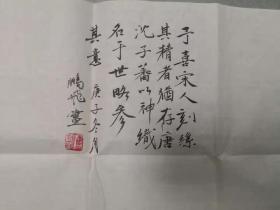 予喜宋人刻絲
其精者猶存唐
沈子蕃以神織
名于世略參
其意 庚子冬月
鵬飛畫